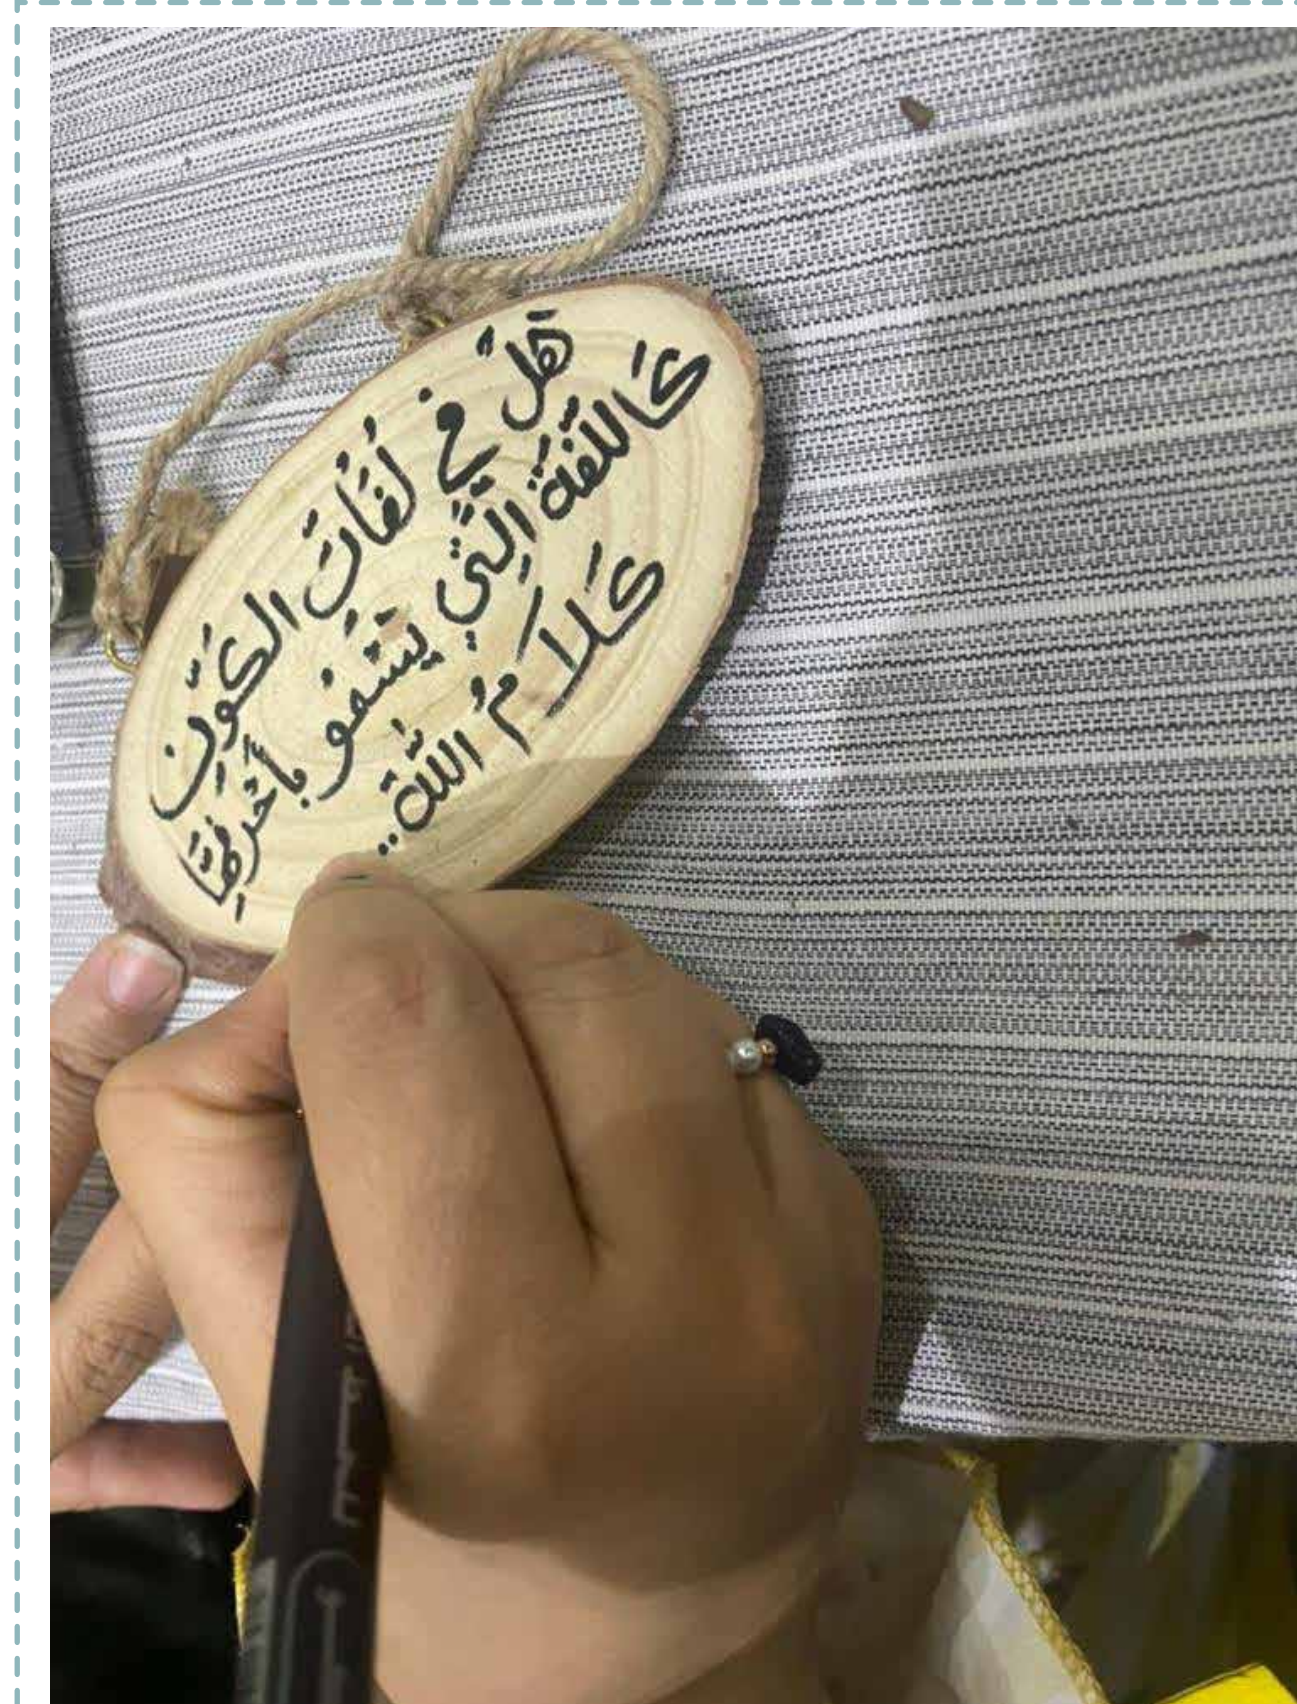 هَلْ فِي لُغَاتِ الكَوْنِ
كَاللُّغَةِ الَّتِي يَشْفُو بِأَحْرُفِهَا
كَلَامُ اللَّه..